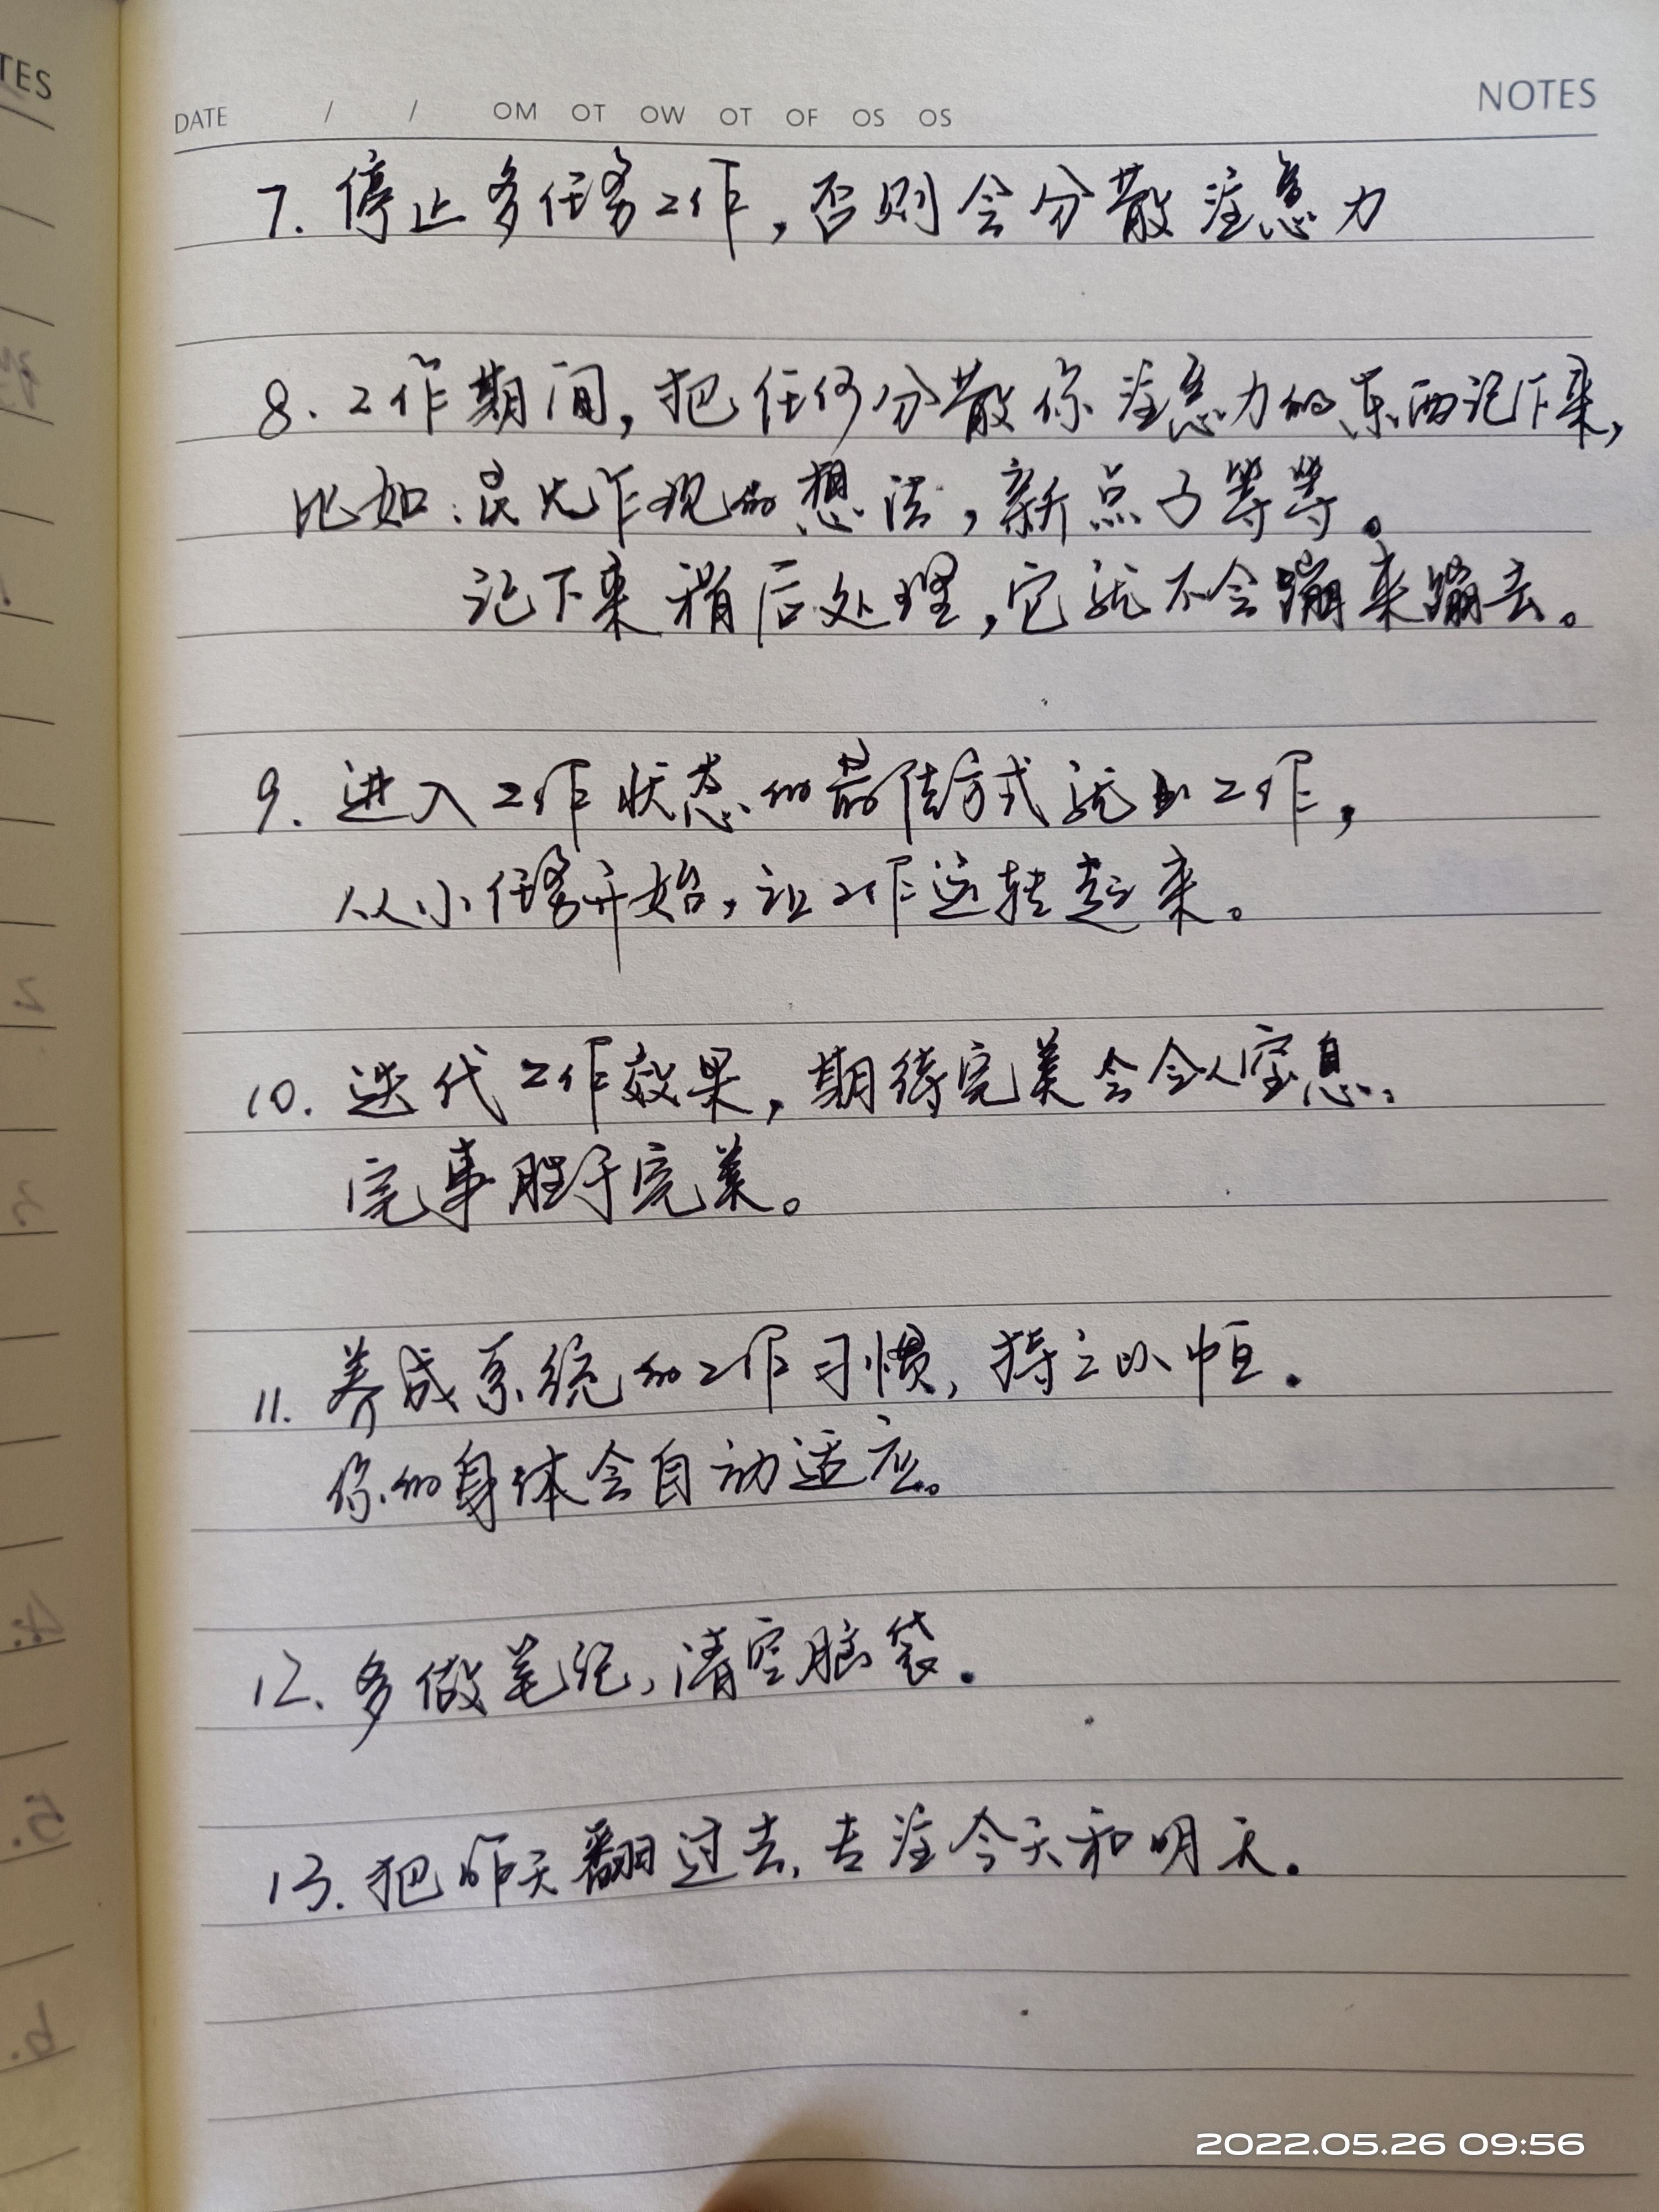 TES
NOTES
DATE / / OM OT OW OT OF OS OS
7. 停止多任务工作，否则会分散注意力
8. 工作期间，把任何分散你注意力的东西记下来，
比如：灵光乍现的想法，新点子等等。
记下来稍后处理，它就不会蹦来蹦去。
9. 进入工作状态的最佳方式就是工作，
从小任务开始，让工作运转起来。
10. 迭代工作效果，期待完美会令人窒息，
完事胜于完美。
11. 养成系统的工作习惯，持之以恒.
你的身体会自动适应。
12. 多做笔记，清空脑袋.
13. 把昨天翻过去，专注今天和明天.
2022.05.26 09:56